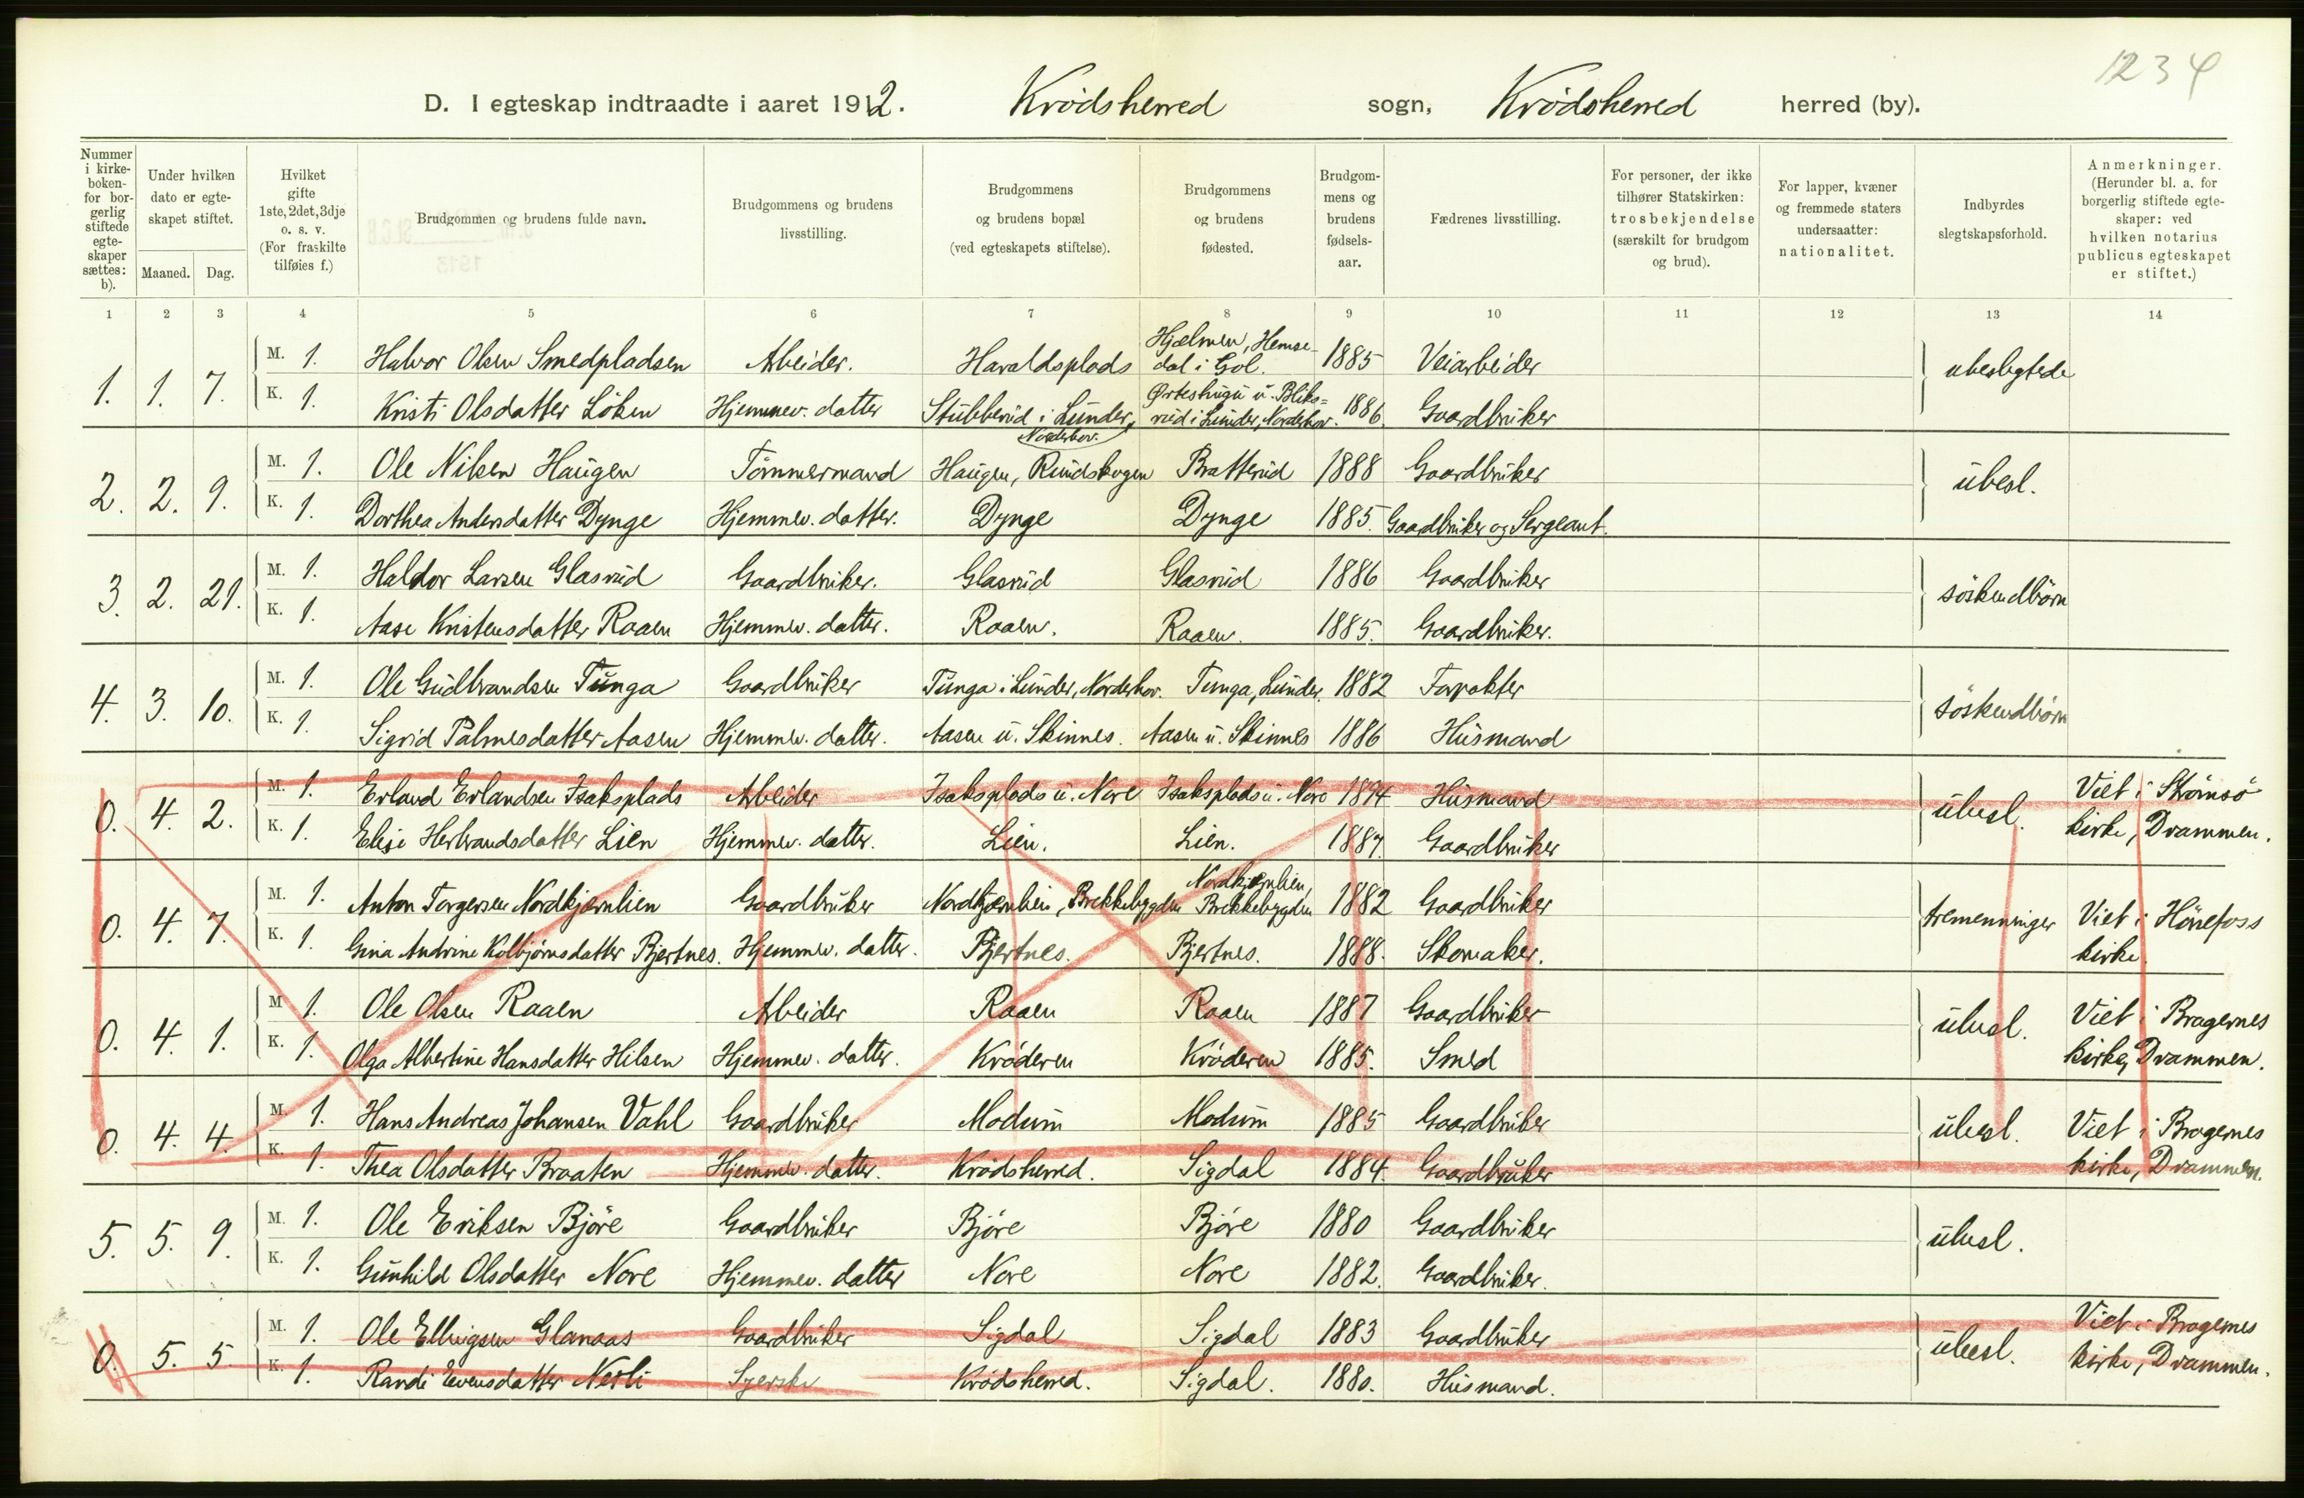 1234
D. I egteskap indtraadte i aaret 1912. Krødsherred sogn, Krødsherred herred (by).
Nummer i kirkeboken- for borgerlig stiftede egteskaper sættes: b).
Under hvilken dato er egteskapet stiftet.
Maaned. Dag.
Hvilket gifte 1ste, 2det, 3dje o. s. v. (For fraskilte tilføies f.)
Brudgommen og brudens fulde navn.
Brudgommens og brudens livsstilling.
Brudgommens og brudens bopæl (ved egteskapets stiftelse).
Brudgommens og brudens fødested.
Brudgommens og brudens fødselsaar.
Fædrenes livsstilling.
For personer, der ikke tilhører Statskirken: trosbekjendelse (særskilt for brudgom og brud).
For lapper, kvæner og fremmede staters undersaatter: nationalitet.
Indbyrdes slegtskapsforhold.
Anmerkninger. (Herunder bl. a. for borgerlig stiftede egteskaper: ved hvilken notarius publicus egteskapet er stiftet.)
1 2 3 4 5 6 7 8 9 10 11 12 13 14
1. 1. 7. M. 1. Halvor Olsen Smedpladsen Arbeider. Haraldsplads Hjælmen, Hemsedal i Gol. 1885 Veiarbeider ubeslegtede
K. 1. Kristi Olsdatter Løken Hjemmev. datter Stubberud i Lunder, Norderhov. Ørteshugu u. Bliksrud i Lunder, Norderhov. 1886. Gaardbruker
2. 2. 9. M. 1. Ole Nilsen Haugen Tömmermand Haugen, Rundskogen Bratterud 1888 Gaardbruker ubesl.
K. 1. Dorthea Andersdatter Dynge Hjemmev. datter. Dynge Dynge 1885. Gaardbruker og Sergeant.
3. 2. 21. M. 1. Haldor Larsen Glasrud Gaardbruker. Glasrud Glasrud 1886 Gaardbruker söskendbörn
K. 1. Aase Kristensdatter Raaen Hjemmev. datter. Raaen. Raaen. 1885. Gaardbruker.
4. 3. 10. M. 1. Ole Gudbrandsen Tunga Gaardbruker Tunga i Lunder, Norderhov. Tunga, Lunder. 1882 Forpakter söskendbörn
K. 1. Sigrid Palmesdatter Aasen Hjemmev. datter. Aasen u. Skinnes. Aasen u. Skinnes 1886 Husmand
0. 4. 2. M. 1. Erland Erlandsen Isaksplads Arbeider Isaksplads u. Nore Isaksplads u. Nore 1894 Husmand ubesl. Viet i Strømsö
K. 1. Elise Herbrandsdatter Lien Hjemmev. datter. Lien. Lien. 1887. Gaardbruker kirke, Drammen.
0. 4. 7. M. 1. Anton Torgersen Nordkjernlien Gaardbruker Nordkjernlien, Brekkebygden Nordkjernlien, Brekkebygden 1882 Gaardbruker tremenninger Viet i Hönefoss
K. 1. Gina Andrine Kolbjørnsdatter Bjertnes. Hjemmev. datter. Bjertnes. Bjertnes. 1888. Skomaker. kirke.
0. 4. 1. M 1. Ole Olsen Raaen Arbeider Raaen Raaen 1887 Gaardbruker ubesl. Viet i Bragernes
K. 1. Olga Albertine Hansdatter Hilsen Hjemmev. datter. Krøderen Krøderen 1885. Smed kirke, Drammen.
0. 4. 4. M. 1. Hans Andreas Johansen Vahl Gaardbruker Modum Modum 1885 Gaardbruker ubesl. Viet i Bragernes
K. 1. Thea Olsdatter Braaten Hjemmev. datter. Krødsherred. Sigdal 1884. Gaardbruker kirke, Drammen.
5. 5. 9. M. 1. Ole Eriksen Björe Gaardbruker Björe Björe 1880 Gaardbruker ubesl.
K. 1. Gunhild Olsdatter Nore Hjemmev. datter Nore Nore 1882. Gaardbruker.
0. 5. 5. M. 1. Ole Ellingsen Glanaas Gaardbruker Sigdal Sigdal 1883 Gaardbruker ubesl. Viet i Bragernes
K. 1. Randi Evensdatter Nerli Syerske Krødsherred. Sigdal. 1880. Husmand. kirke, Drammen.